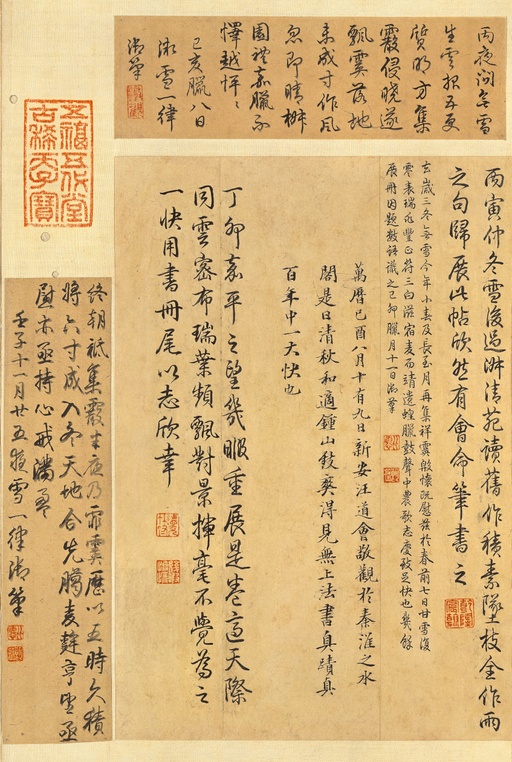 丙夜問無雪
生雲報五更
質明方集
霰侵曉遂
飄霙落地
未成寸作風
忽即晴
園禮嘉臘不
懌越怦怦
己亥臘八日
雪一律
御筆
丙寅仲冬雪後過淑清苑讀舊作積素墜枝全作雨
之句歸展此帖欣然有會命筆書之
玄歲三冬無雪今年小春及長至月再集祥霙殷懷既慰茲於春前七日甘雪復
霑表瑞兆豐正符三白滋宿麥而靖遺蝗臘鼓聲中農歌志慶致足快也幾餘
展冊因題數語識之己卯臘月十一日御筆
萬曆己酉八月十有九日新安汪道會敬觀於秦淮之水
閣是日清秋和適鍾山致爽得見無上法書真蹟真
百年中一大快也
丁卯嘉平之望幾暇重展是卷適天際
同雲密布瑞葉頻飄對景揮毫不覺為之
一快用書冊尾以志欣幸
五福五代堂
古稀天子寶
終朝祗集霰半夜乃霏霙應以五時久積
將六寸成入冬天地合先臘麥麰亨望亟
慰亦亟持心戒滿盈
壬子十一月廿五夜雪一律御筆